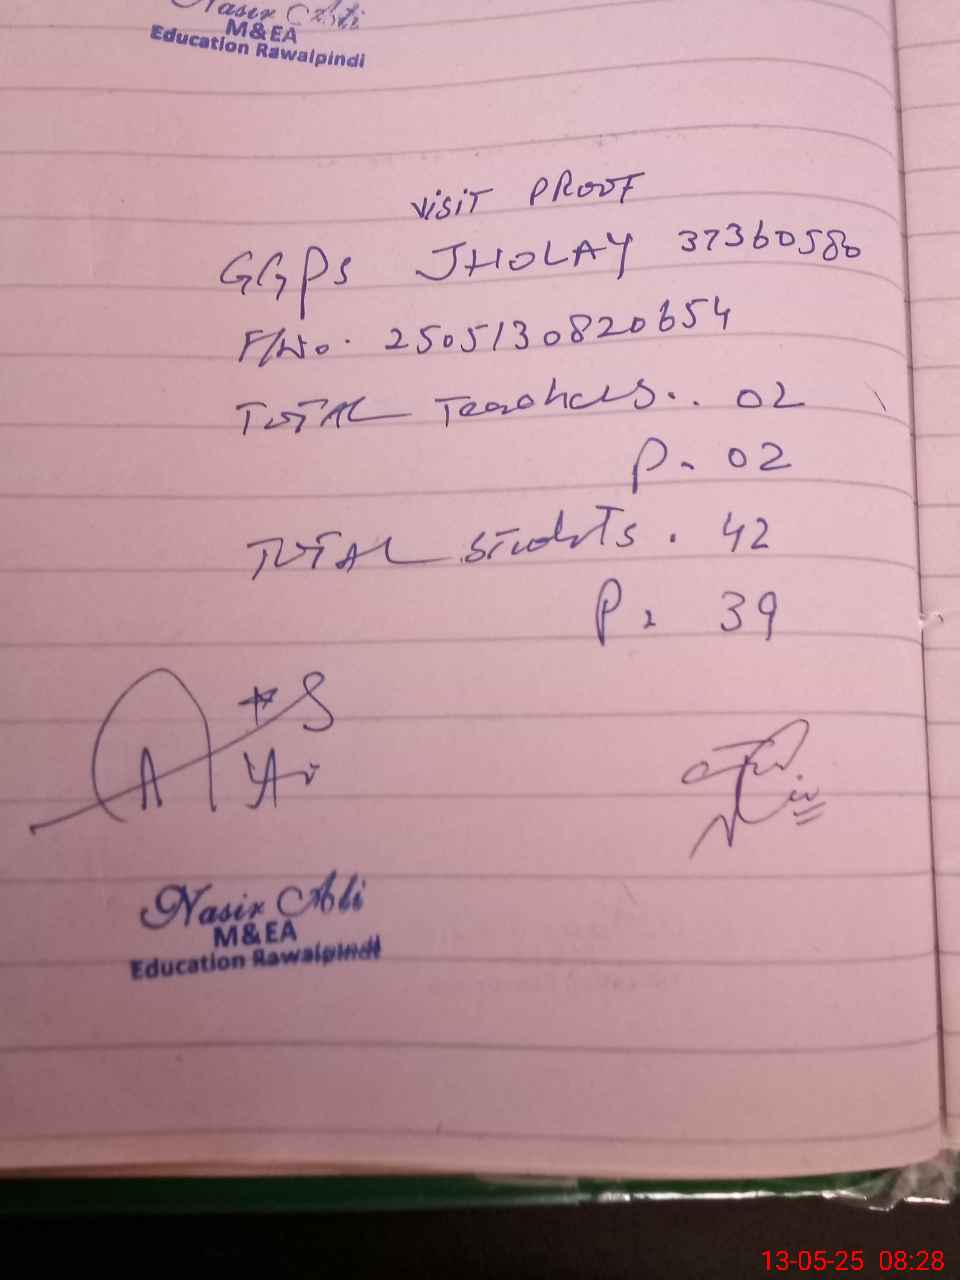 Nasir Ali
M&EA
Education Rawalpindi
VISIT PROOF
GGPS JHOLAY 37360580
F/No. 2505130820654
TOTAL Teachers.. 02
P. 02
TOTAL students. 42
P. 39
Nasir Ali
M&EA
Education Rawalpindi
13-05-25 08:28